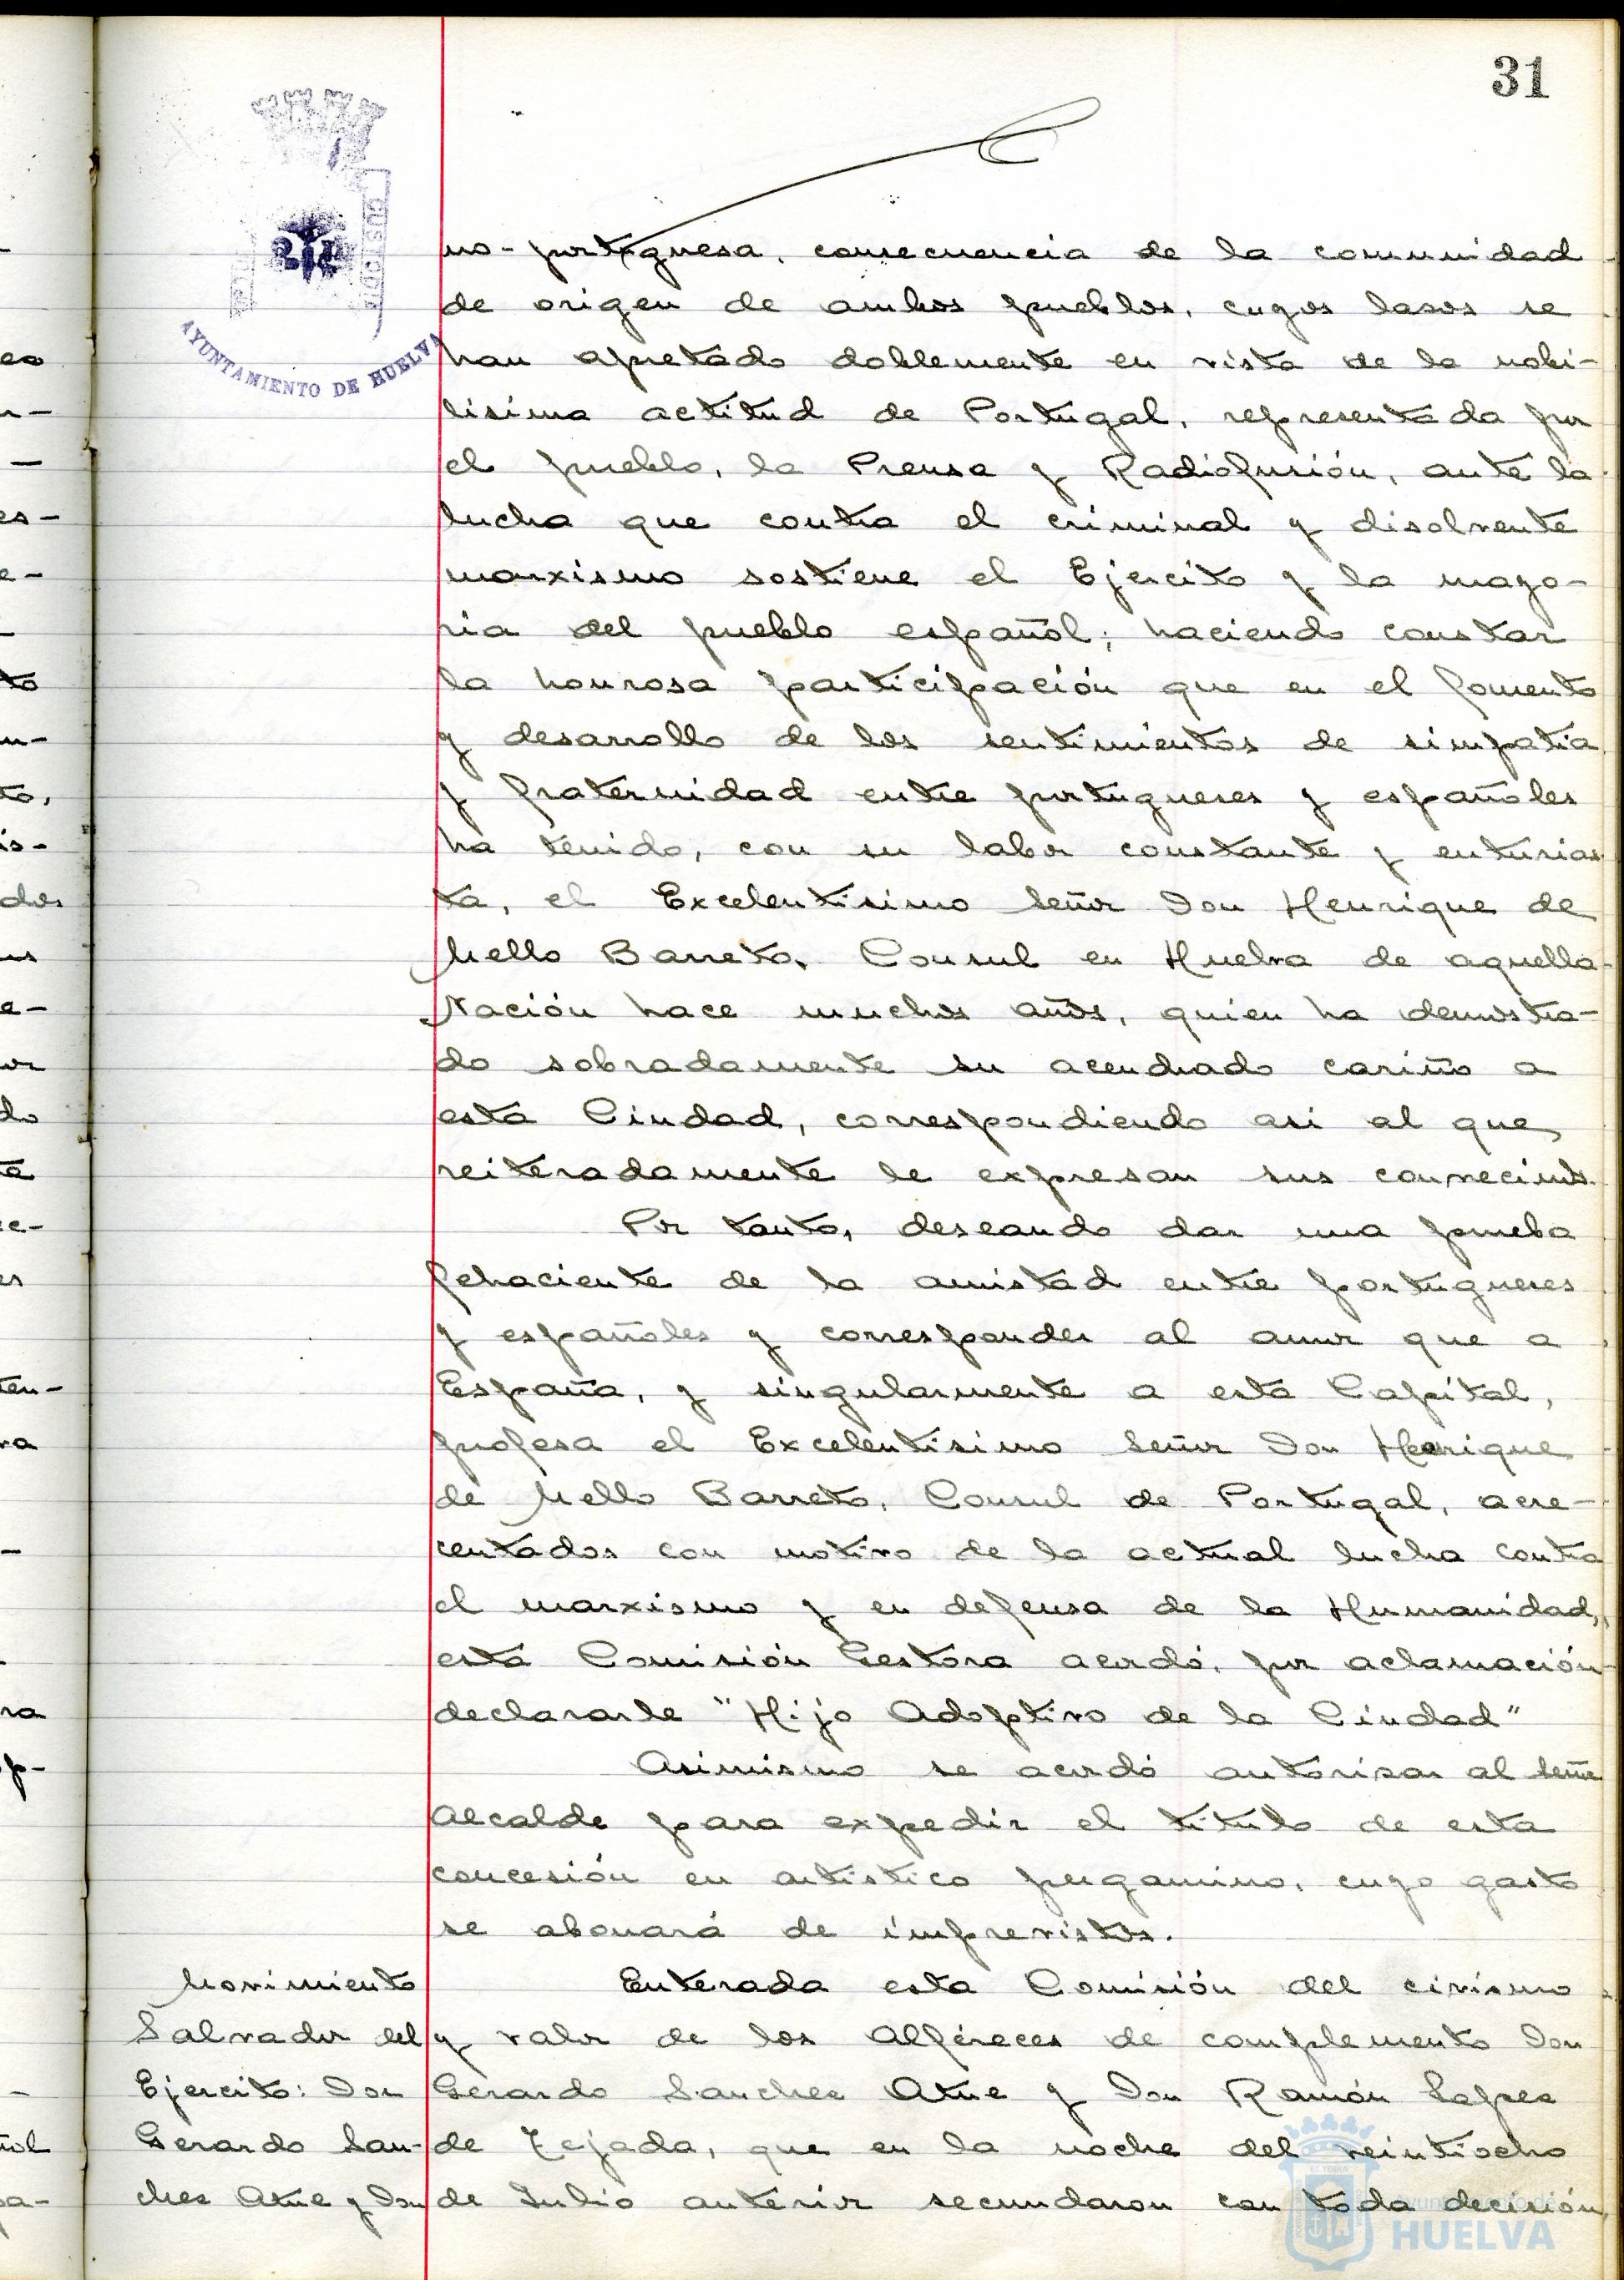 31
AYUNTAMIENTO DE HUELVA
no-portuguesa, consecuencia de la comunidad
de origen de ambos pueblos, cuyos lasos se
han apretado doblemente en vista de la nobi-
lisima actitud de Portugal, representada por
el pueblo, la Prensa y Radiofusión, ante la
lucha que contra el criminal y disolvente
marxismo sostiene el Ejercito y la mayo-
ria del pueblo español; haciendo constar
la honrosa participación que en el fomento
y desarrollo de los sentimientos de simpatia
y fraternidad entre portugueses y españoles
ha tenido, con su labor constante y entusias
ta, el Excelentisimo Señor Don Henrique de
Mello Barreto, Consul en Huelva de aquella
Nación hace muchos años, quien ha demostra-
do sobradamente su acendrado cariño a
esta Ciudad, correspondiendo asi al que
reiteradamente le expresan sus convecinos.
Por tanto, deseando dar una prueba
fehaciente de la amistad entre portugueses
y españoles y corresponder al amor que a
España, y singularmente a esta Capital,
profesa el Excelentisimo Señor Don Henrique
de Mello Barreto, Consul de Portugal, acre-
centados con motivo de la actual lucha contra
el marxismo y en defensa de la Humanidad,
esta Comisión Gestora acordó, por aclamación
declararle "Hijo Adoptivo de la Ciudad"
Asimismo se acordó autorisar al Señor
Alcalde para expedir el titulo de esta
concesión en artistico pergamino, cuyo gasto
se abonará de imprevistos.
Movimiento
Salvador del
Ejercito: Don
Gerardo San-
ches Atne y Don
Enterada esta Comisión del civismo
y valor de los Alféreces de complemento Don
Gerardo Sanches Atne y Don Ramón Lopes
de Tejada, que en la noche del veintiocho
de Julio anterior secundaron con toda decisión,
Ayuntamiento de
HUELVA